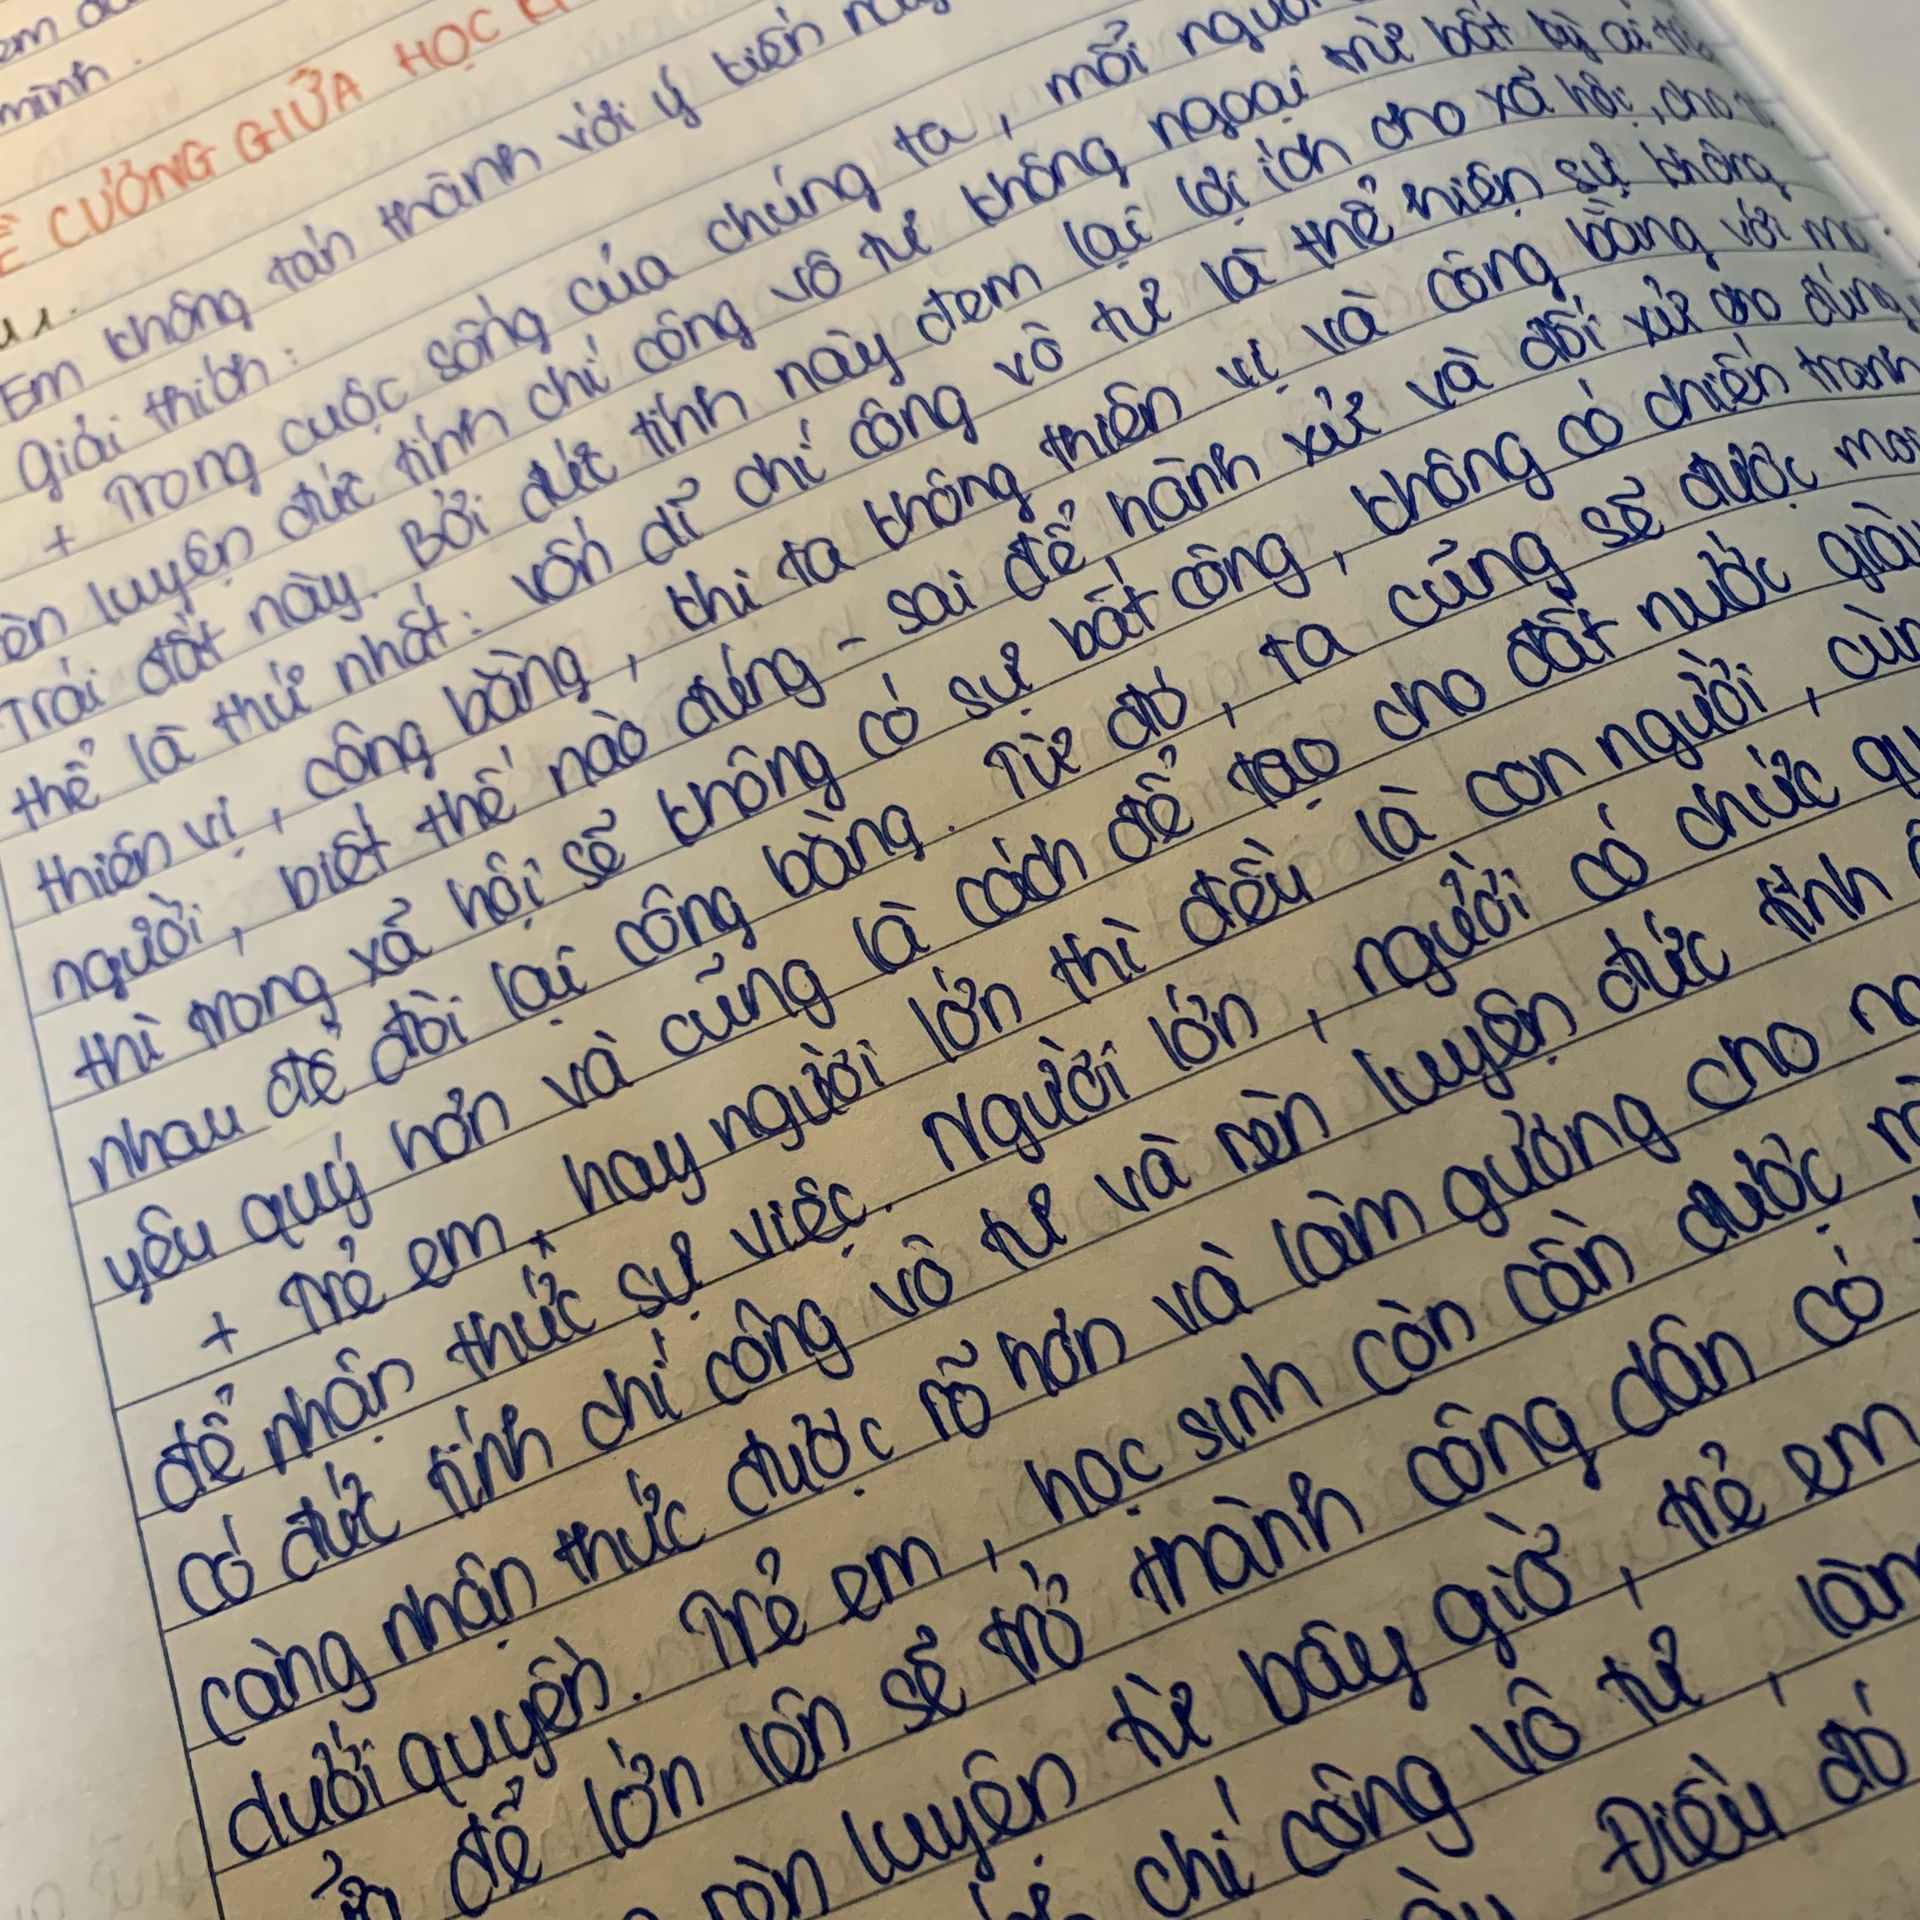 em
mình.
CƯƠNG GIỮA HỌC
Em không tán thành với ý kiến này
Giải thích:
+ Trong cuộc sống của chúng ta, mỗi người
rèn luyện đức tính chí công vô tư không ngoại trừ bất kỳ ai
Trái đất này. Bởi đức tính này đem lại lợi ích cho xã hội, cho
thể là thứ nhất: vốn dĩ chí công vô tư là thể hiện sự không
thiên vị, công bằng, khi ta không thiên vị và công bằng với
người, biết thế nào đúng - sai để hành xử và đối xử cho đúng
thì trong xã hội sẽ không có sự bất công, không có chiến tranh
nhau để đòi lại công bằng. Từ đó, ta cũng sẽ được mọi
yêu quý hơn và cũng là cách để tạo cho đất nước giàu
+ Trẻ em, hay người lớn thì đều là con người, cùng
để nhận thức sự việc. Người lớn, người có chức
có đức tính chí công vô tư và rèn luyện đức tính
càng nhận thức được rõ hơn và làm gương cho
dưới quyền. Trẻ em, học sinh còn cần được
để lớn lên sẽ trở thành công dân có
rèn luyện từ bây giờ, trẻ em
chí công vô tư, làm
Điều đó